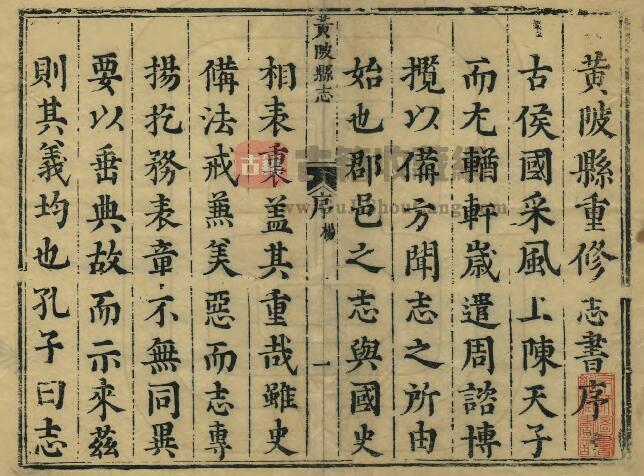 黄陂縣重修志書序
古侯國采風上陳天子
而尤輶軒歲遣周諮博
攬以備方聞志之所由
始也郡邑之志與國史
黄陂縣志
序
楊
一
相表裏盖其重哉雖史
備法戒兼美惡而志專
揚扢務表章不無同異
要以垂典故而示來兹
則其義均也孔子曰志
古籍